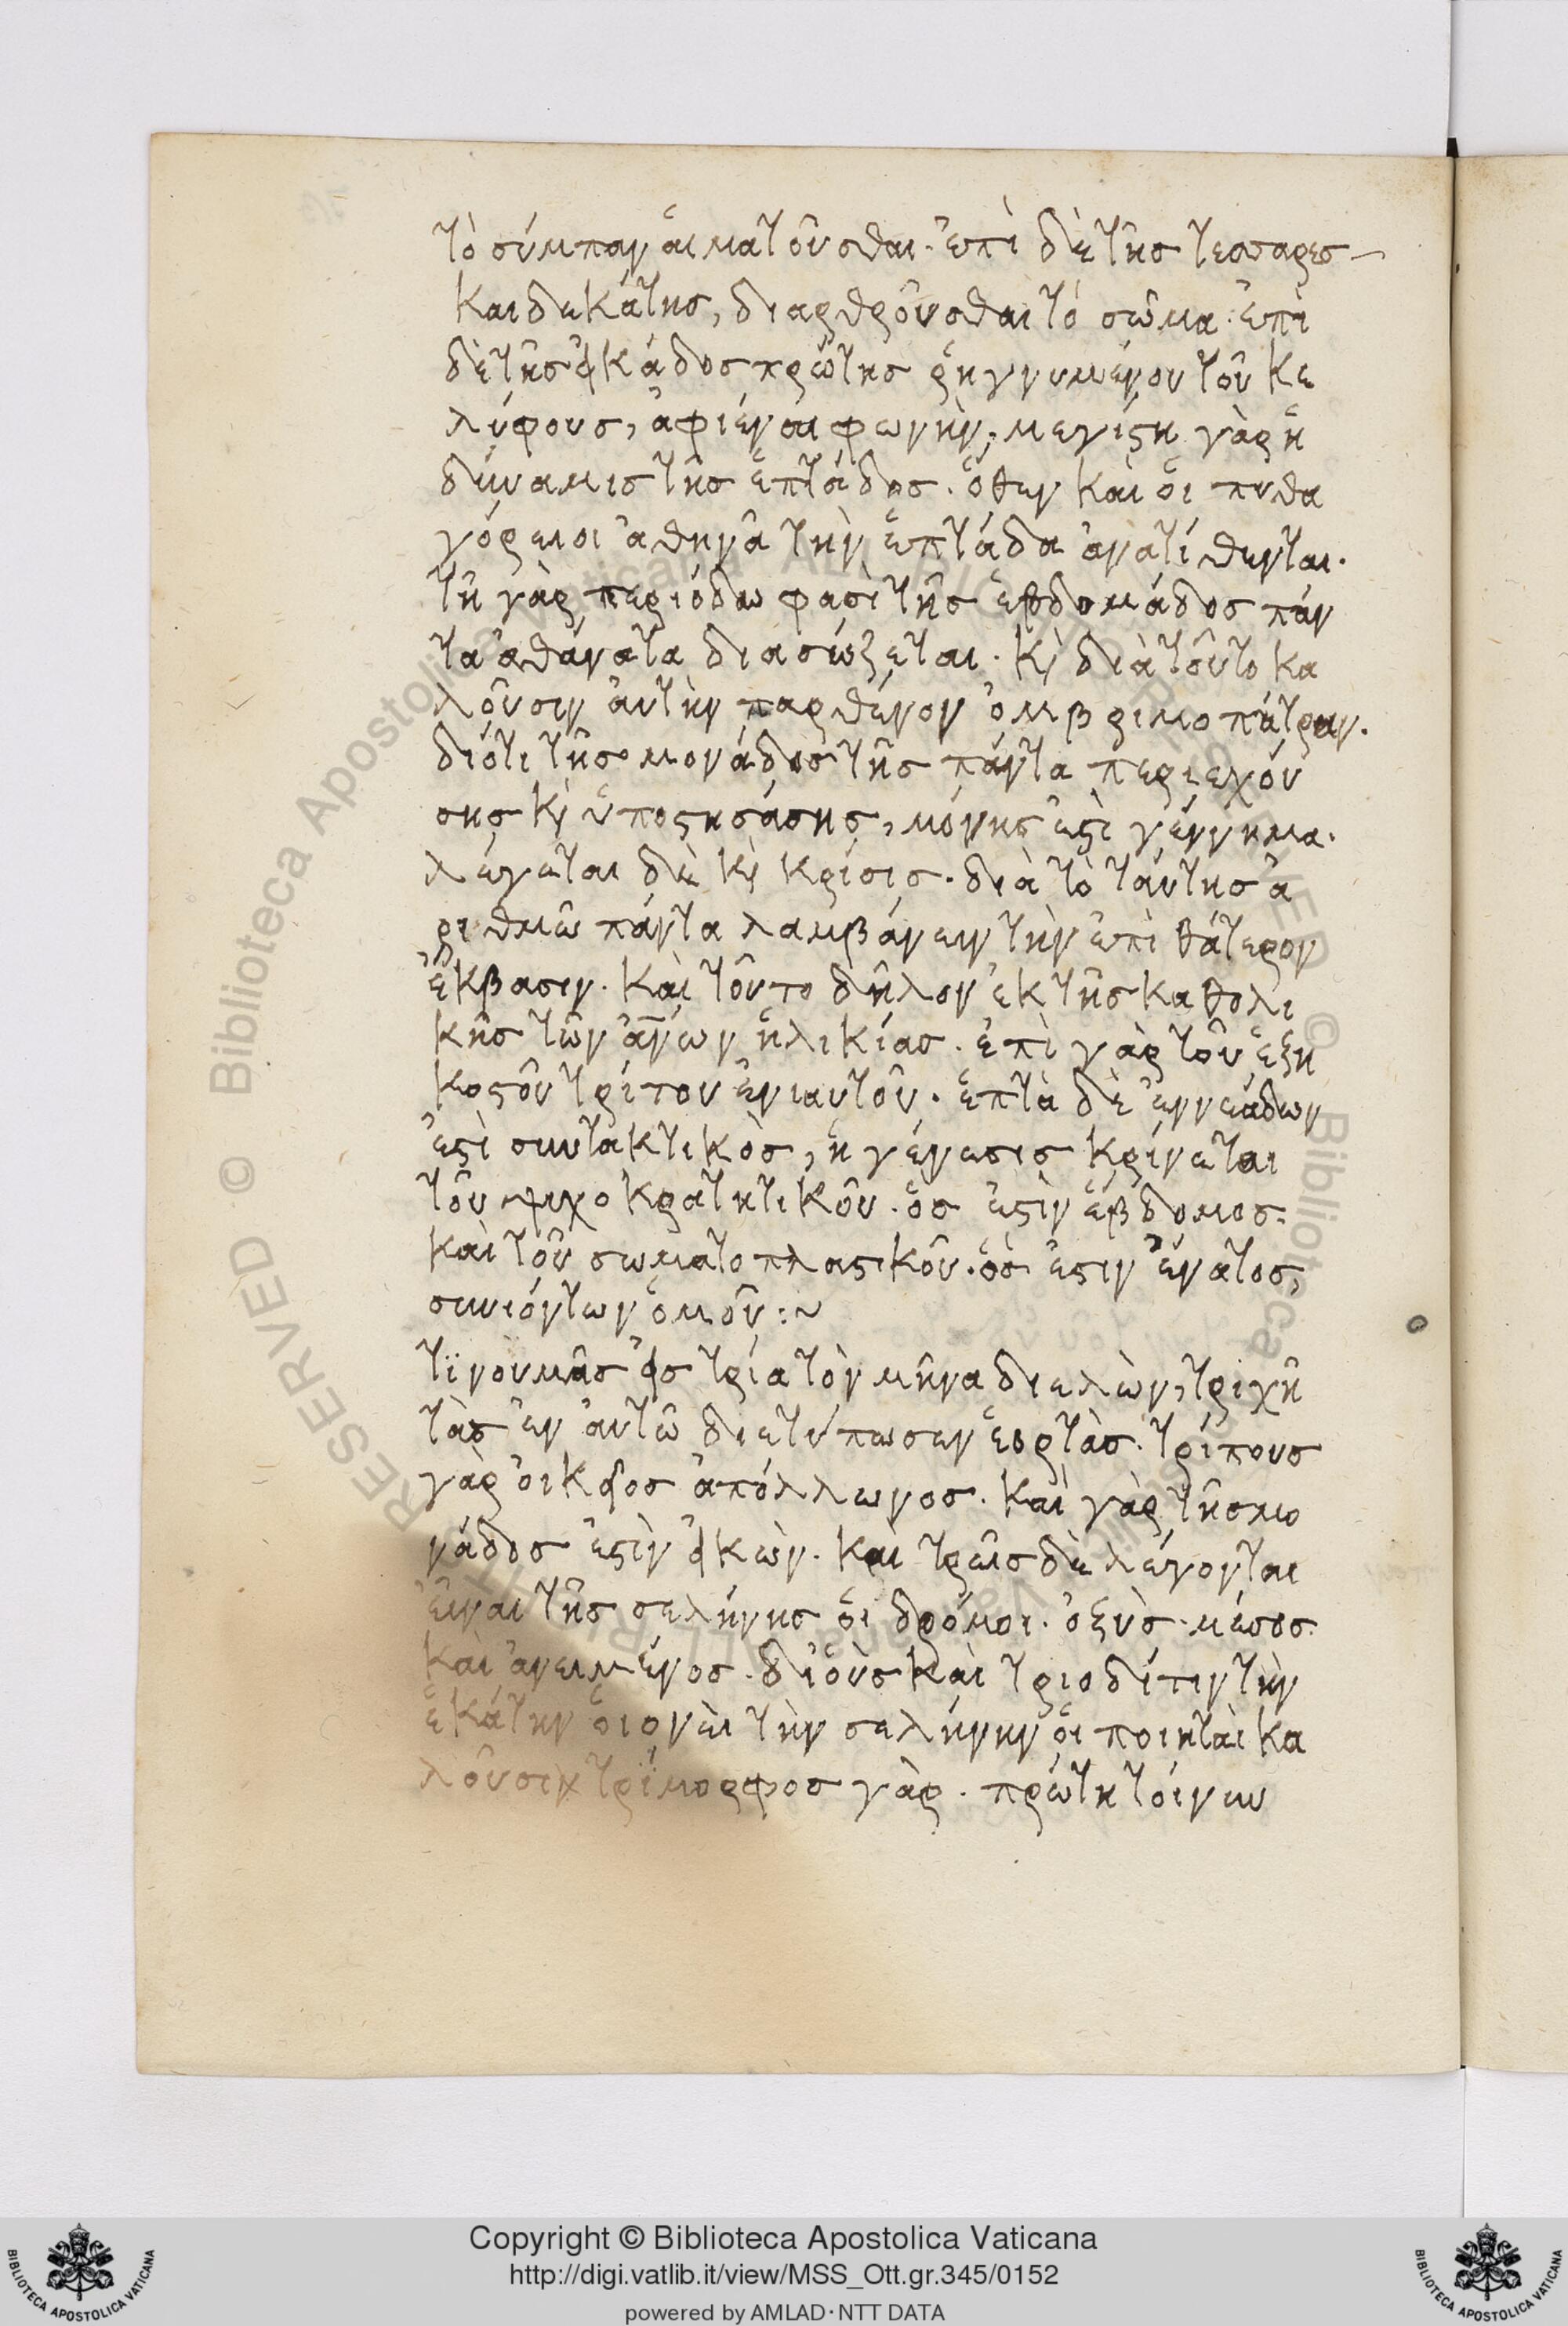 τὸ σύμπαν αἱματοῦσθαι· ἐπὶ δὲ τῆς τεσσαρεσ
καιδεκάτης, διαρθροῦσθαι τὸ σῶμα· ἐπὶ
δὲ τῆς εἰκάδος πρώτης ῥηγνυμένου τοῦ κε
λύφους, ἀφιέναι φωνὴν· μεγίστη γὰρ ἡ
δύναμις τῆς ἑπτάδος· ὅθεν καὶ οἱ πυθα
γόρειοι ἀθηνᾶ τὴν ἑπτάδα ἀνατίθενται·
τῆ γὰρ περιόδω φασὶ τῆς ἑβδομάδος πάν
τα ἀθάνατα διασώζεται· κὶ διὰ τοῦτο κα
λοῦσιν ἀυτὴν παρθένον ὀμβριμοπάτραν·
διότι τῆς μονάδος τῆς πάντα περιεχόυ
σης κὶ ὑποστησάσης, μόνης ἐστὶ γέννημα·
λέγεται δὲ κὶ κρίσις· διὰ τὸ τάυτης ἀ
ριθμῶ πάντα λαμβάνειν τὴν ἐπὶ θάτερον
ἔκβασιν· καὶ τοῦτο δῆλον ἐκ τῆς καθολι
κῆς τῶν ἀνων ἡλικίας· ἐπὶ γὰρ τοῦ ἑξη
κοστοῦ τρίτου ἐνιαυτοῦ· ἑπτὰ δὲ ἐννεάδων
ἐστὶ συντακτικὸς, ἡ γένεσις κρίνεται
τοῦ ψυχοκρατητικοῦ· ὅς ἐστὶν ἕβδομος·
καὶ τοῦ σωματοπλαστικοῦ· ὅς ἐστιν ἔνατος,
συνιόντων ὁμοῦ:~
τϊ νουμᾶς εἰς τρία τὸν μῆνα διελὼν, τριχῆ
τὰς ἐν ἀυτῶ διετύπωσεν ἑορτὰς· τρίπους
γὰρ ὀικεῖος ἀπόλλωνος· καὶ γὰρ τῆς μο
νάδος ἐστὶν εἰκὼν· καὶ τρεῖς δὲ λέγονται
εἶναι τῆς σελήνης οἱ δρόμοι· ὀξὺς· μέσος·
καὶ ἀνειμένος· δι οὓς καὶ τριοδίτιν τὴν
ἑκάτην ὁιονεὶ τὴν σελήνην οἱ ποιηταὶ κα
λοῦσιν τρίμορφος γὰρ· πρώτη τοίνυν
Copyright © Biblioteca Apostolica Vaticana
http://digi.vatlib.it/view/MSS_Ott.gr.345/0152
powered by AMLAD·NTT DATA